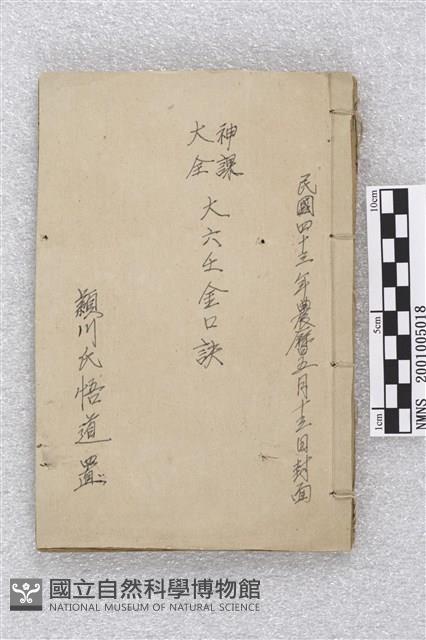 民國四十三年農曆五月十三日封面
神課
大全
大六壬金口訣
穎川氏悟道置
10cm
5cm
1cm
NMNS 2001005018
國立自然科學博物館
NATIONAL MUSEUM OF NATURAL SCIENCE